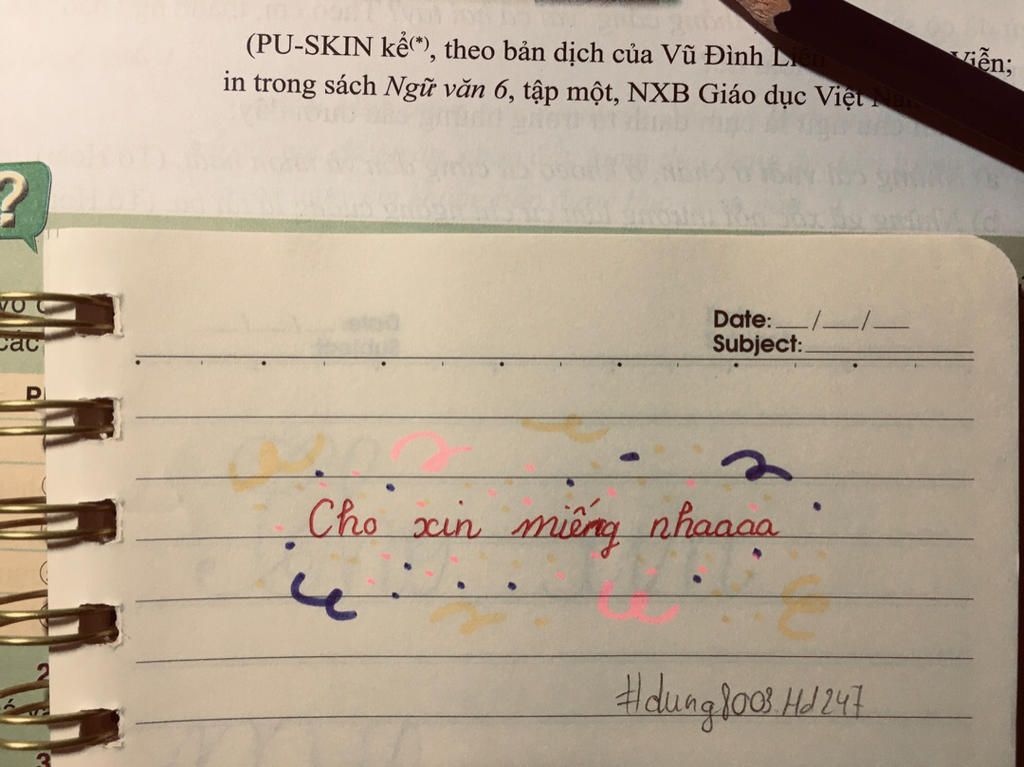 (PU-SKIN kể(*), theo bản dịch của Vũ Đình
in trong sách Ngữ văn 6, tập một, NXB Giáo dục Việt
?
các
Date: __/__/__
Subject:
P
Cho xin miếng nhaaaa
#dung8003.Hd247
2
3